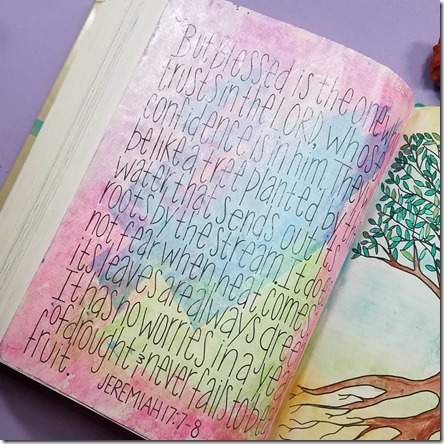 "But blessed is the one
trusts in the LORD, whos
confidence is in him. The
be like a tree planted by
water that sends out
roots by the stream. It do
not fear when heat comes
its leaves are always gree
It has no worries in a ye
of drought & never fails to be
fruit.
JEREMIAH 17:7-8